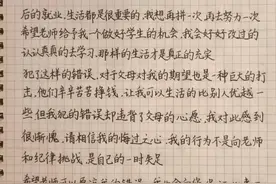 后的就业、生活都是很重要的,我想再拼一次,再去努力一次
希望老师给予我一个做好学生的机会,我会好好改过的
认认真真的去学习,那样的生活才是真正的充实
犯了这样的错误,对于父母对我的期望也是一种巨大的打
击,他们辛辛苦苦挣钱,让我可以生活的比别人优越一
些但我犯的错却违背了父母的心愿,我对此感到
很惭愧,请相信我的悔过之心,我的行为不是向老师
和纪律挑战,是自己的一时失足